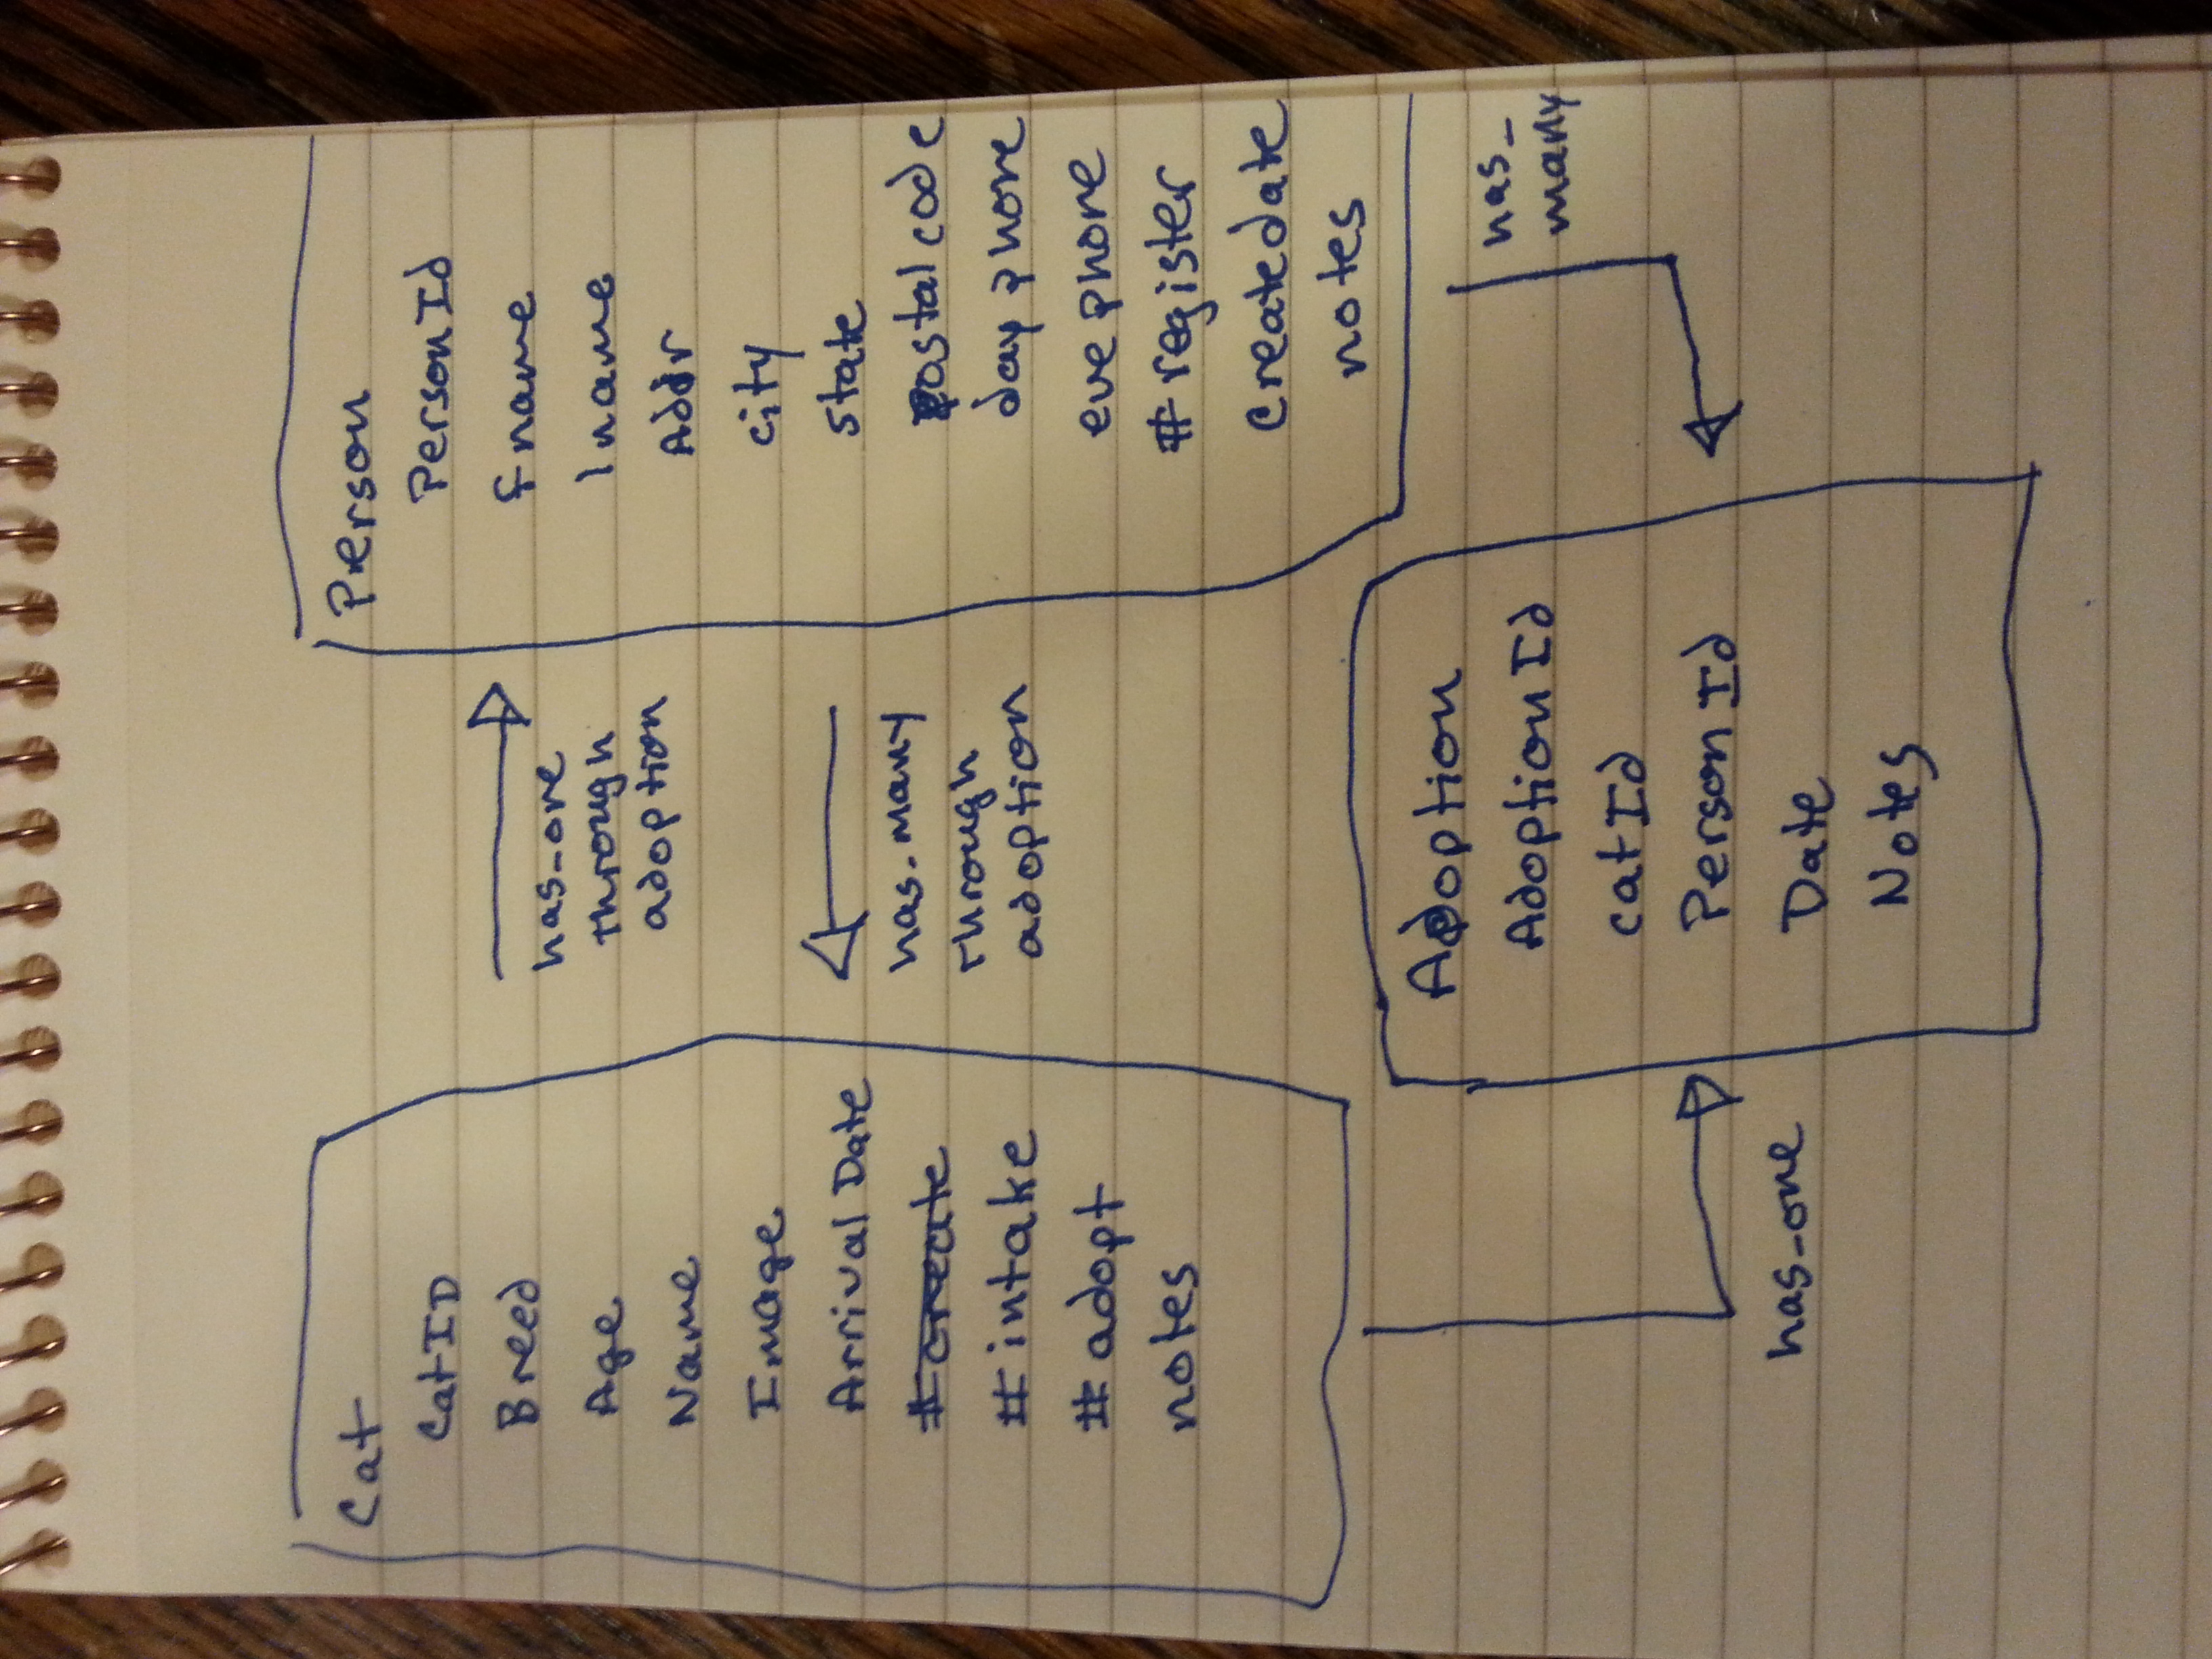 Cat
CatID
Breed
Age
Name
Image
Arrival Date
#create
#intake
#adopt
notes
has_one
through
adoption
has_many
through
adoption
Person
PersonId
fname
lname
Addr
city
state
postal code
day phone
eve phone
#register
Createdate
notes
has_one
Adoption
AdoptionId
catId
PersonId
Date
Notes
has_
many